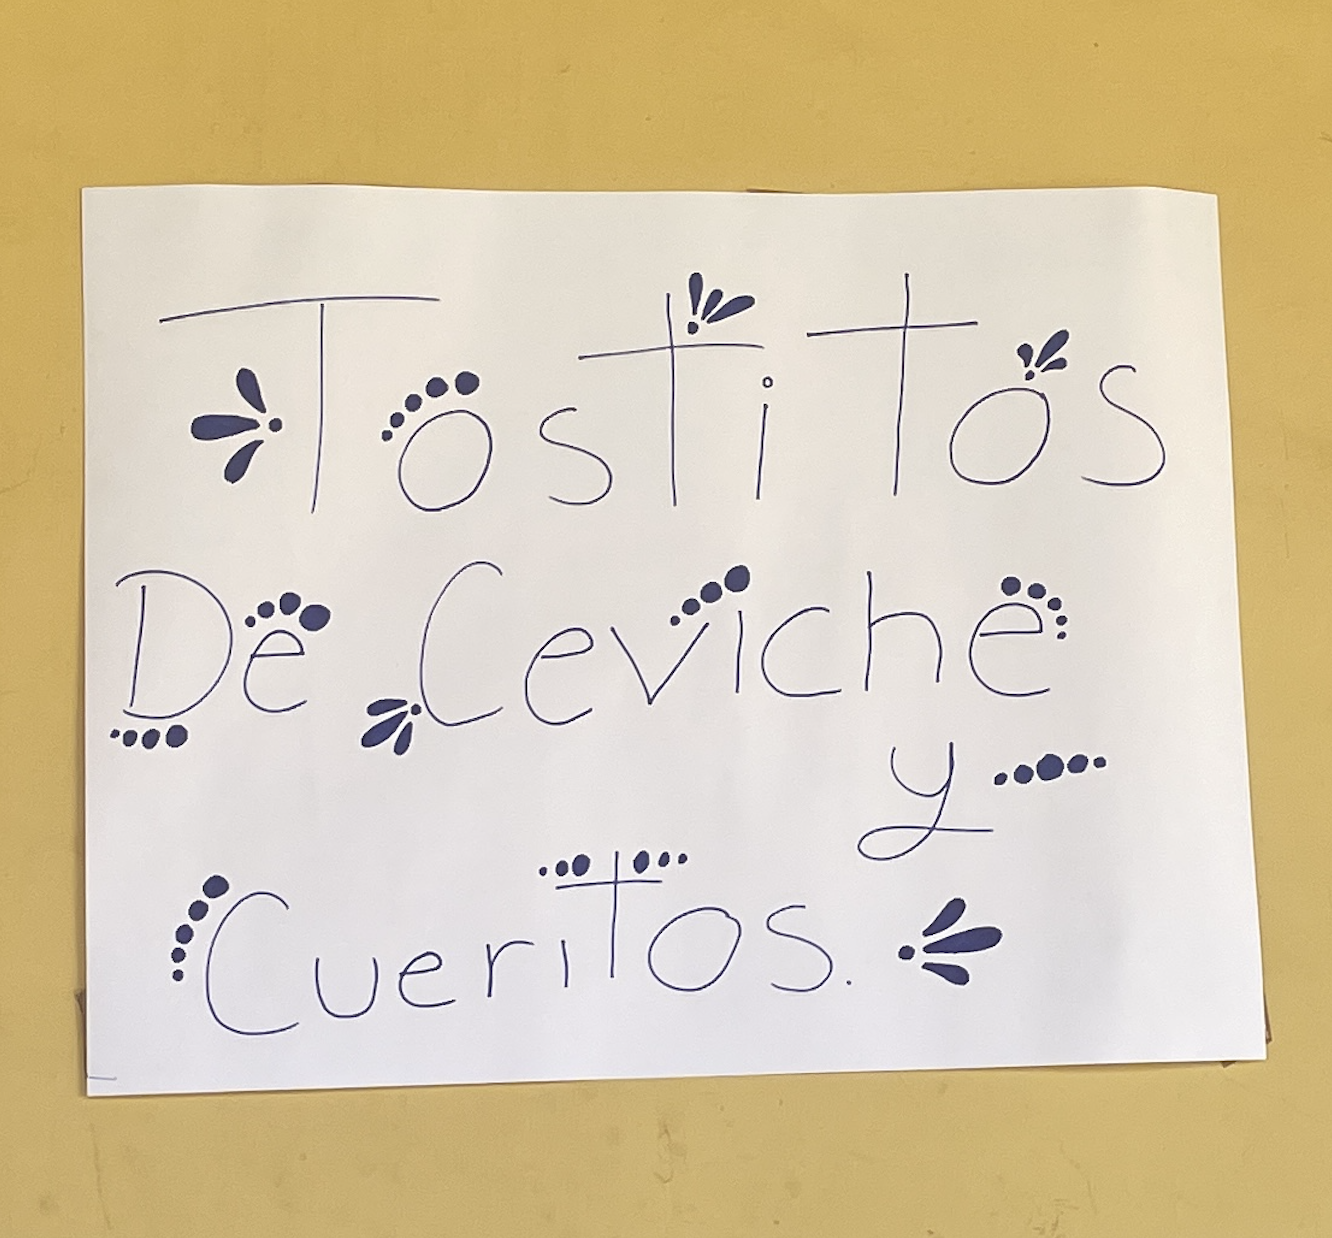 Tostitos
De Ceviche
y
Cueritos.